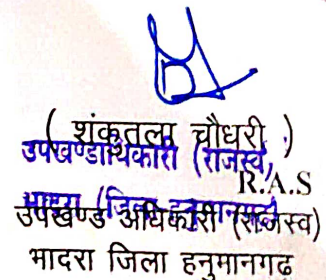 ( शंकुतला चौधरी )
उपखण्डाधिकारी (राजस्व)
R.A.S
भादरा (जिला हनुमानगढ़)
उपखण्ड अधिकारी (राजस्व)
भादरा जिला हनुमानगढ़